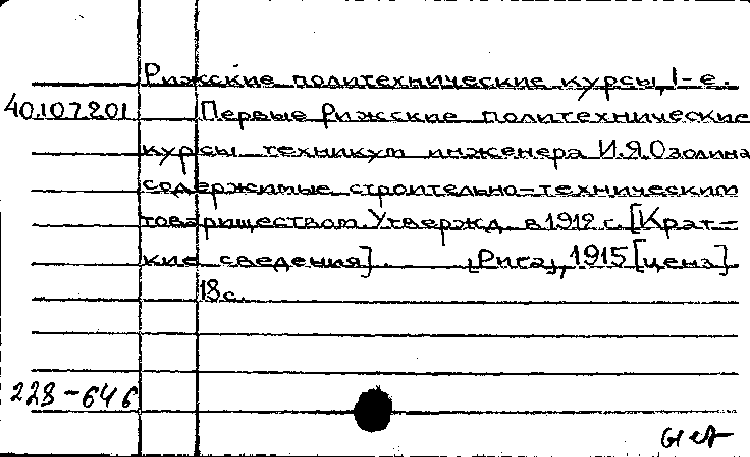 Рижские политехнические курсы, 1-е.
40.107.201 Первые Рижские политехнические
курсы техникум инженера И.Я.Озолина
содержимые строительно-техническим
товариществом. Утвержд. в 1912 г. [Крат-
кие сведения]. [Рига], 1915 [цена]
18 с.
228-646